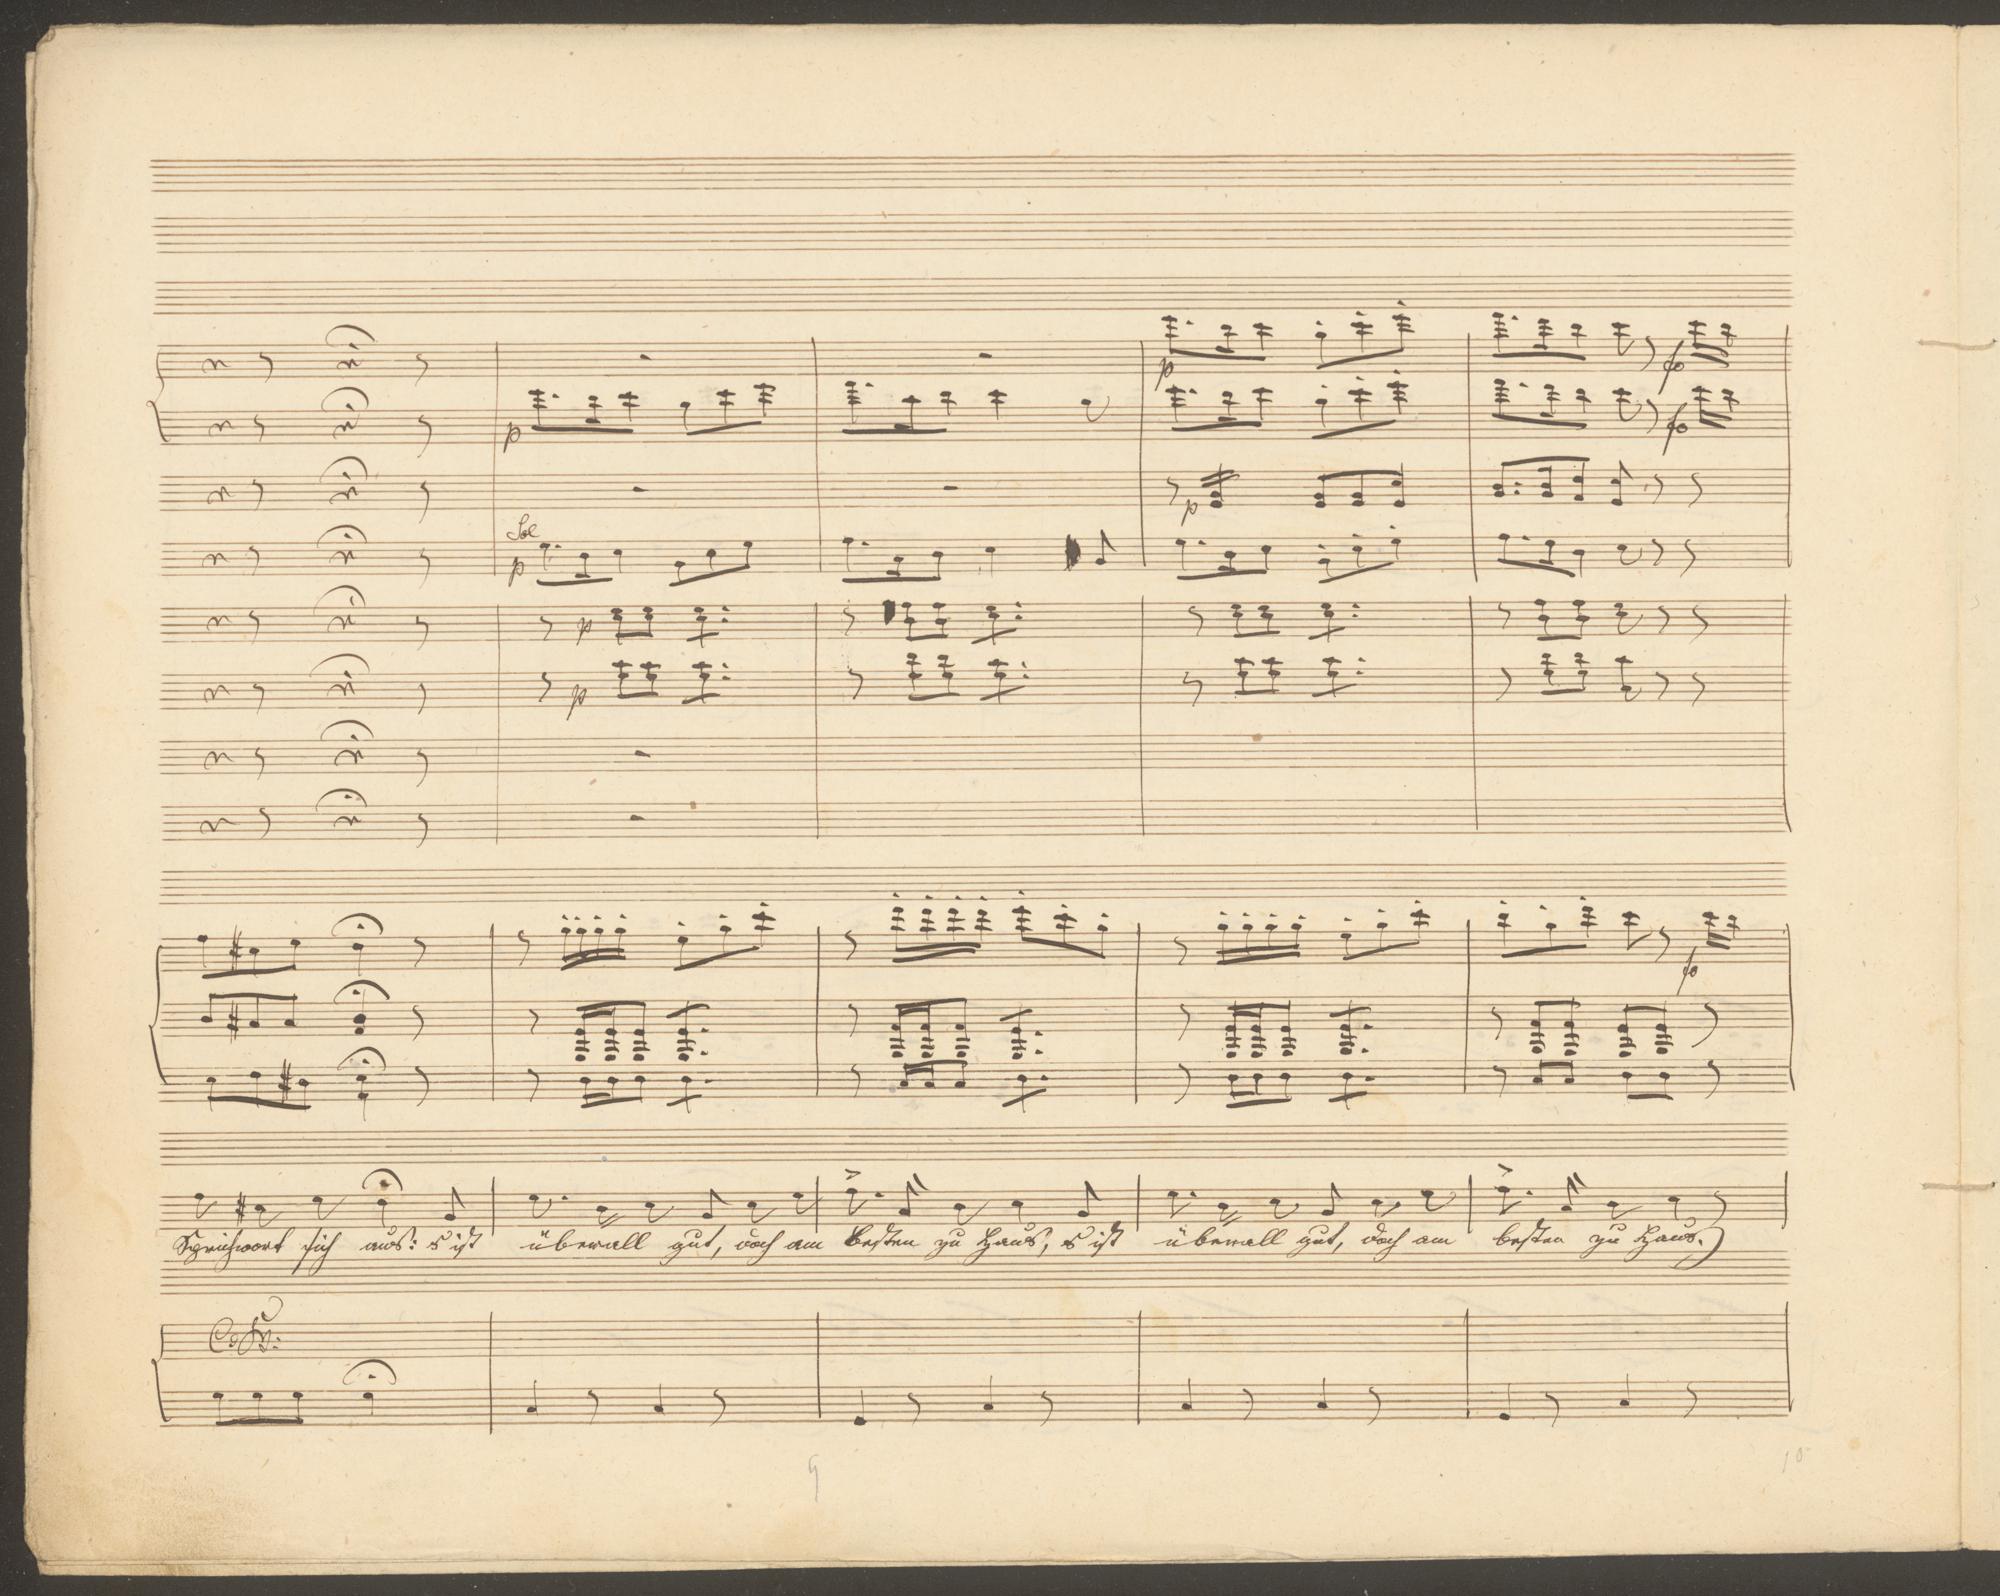 p
fp
p
fp
p
Sol
p
p
p
fp
Sprichwort sich aus: s ist überall gut, doch am besten zu Haus, s ist überall gut, doch am besten zu Haus.
9
10